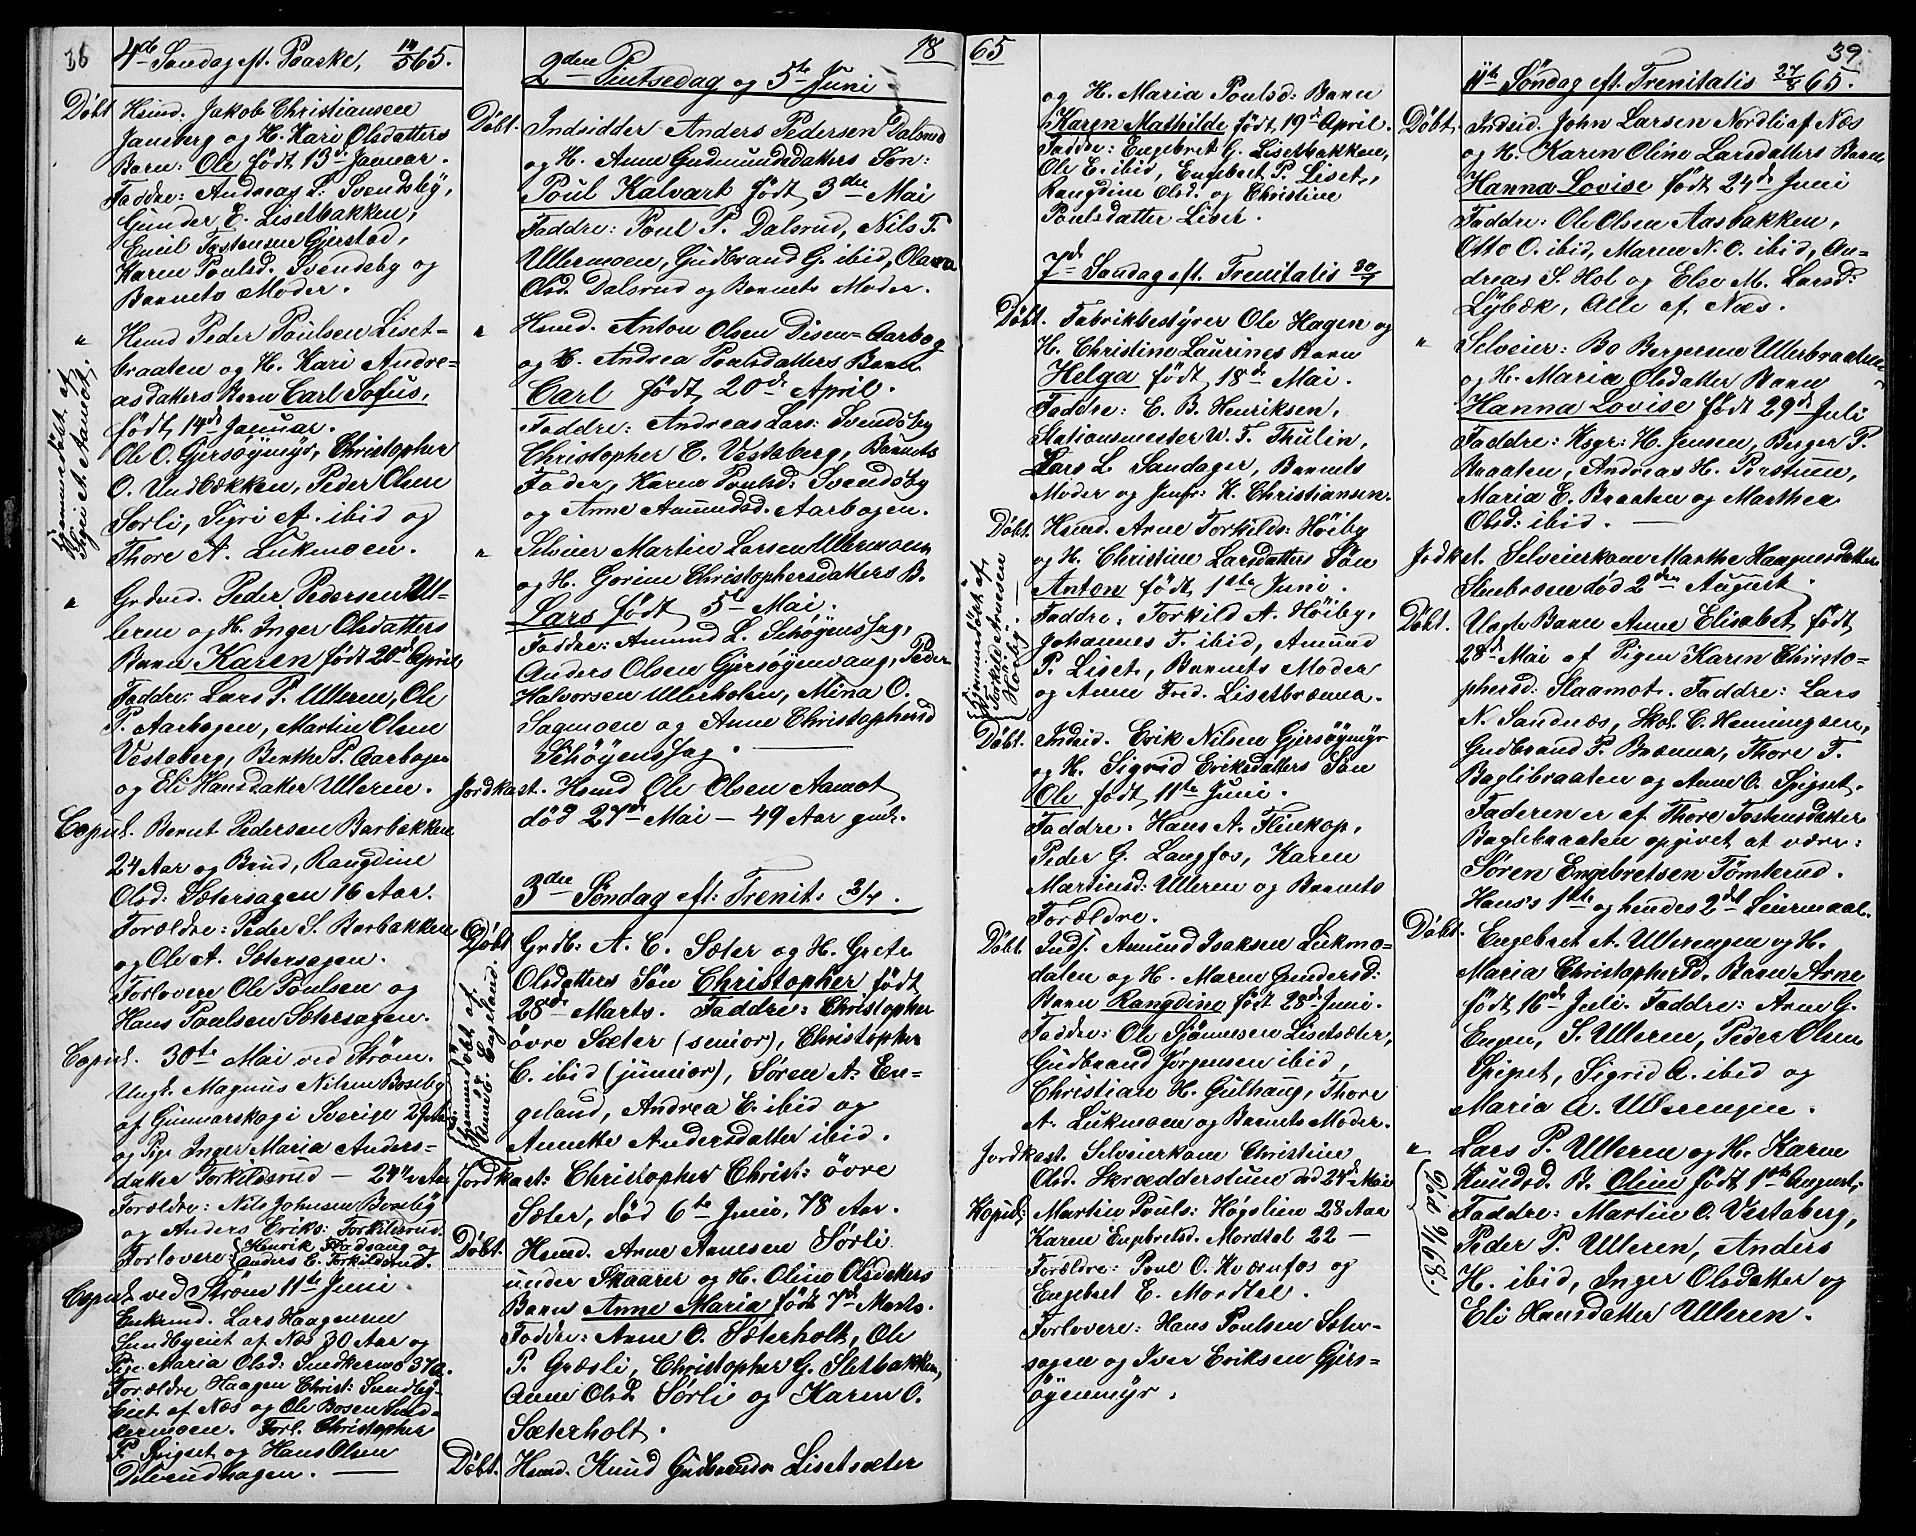 38
4de Søndag eft. Paaske, 14/5 65.
Døbt
Hsmd. Jakob Christiansen
Jansberg og H. Kari Olsdatters
Barn: Ole født 13de Januar.
Faddre: Andreas L. Svendsby,
Gunder E. Lisetbakken,
Emil Tostensen Gjerstad,
Karen Poulsd. Svendsby og
Barnets Moder.
"
Hsmd Peder Poulsen Liset-
braaten og H. Kari Andre-
asdatters Barn Carl Sofus,
født 14de Januar.
Ole O. Gjersøymyr, Christopher
O. Undbækken, Peder Olsen
Sorli, Sigri A. ibid og
Thore A. Lukmoen.
Hjemmedøbt af
Sigri A. Aamodt.
"
Grdmd. Peder Pedersen Ul-
leren og H. Inger Olsdatters
Barn Karen født 20de April,
Faddre: Lars P. Ulleren, Ole
P. Aarbogen, Martin Olsen
Vestaberg, Berthe P. Aarbogen
og Eli Hansdatter Ulleren.
Copul. Bernt Pedersen Barbakken
24 Aar og Brud, Rangdine
Olsd: Sætersagen 16 Aar.
Forældre: Peder S. Barbakken
og Ole A. Sætersagen.
Forlovere Ole Poulsen og
Hans Poulsen Sætersagen.
Copul. 30te Mai ved Strøm.
Ungk. Magnus Nilsen Boseby
af Gunnarskog i Sverige
og Pig. Inger Maria Anders-
datter Torkildsrud - 24
Forældre: Nils Johnsen Boseby
og Anders Eriks: Torkilsrud.
Forlovere: Henrik Stadsang og
Anders E. Torkildsrud.
Copul. ved Strøm 11te Juni.
Enkemd. Lars Haagensen
Sundbyeiet af Næs 30 Aar og
Pige Maria Olsd: Snekkermo 37 a.
Forældre Haagen Christ: Sundby-
eiet af Næs og Ole Bosen Snek-
kermoen. Forl. Christopher
P. Spigset og Hans Olsen
18
2den Pintsedag og 5te Juni
Døbt.
Indsidder Anders Pedersen Dalsrud
og H. Anne Gudmundsdatters Søn:
Poul Kalvart født 3die Mai
Faddre: Poul P. Dalsrud, Nils T.
Ullermoen, Gudbrand G. ibid, Olava
Olsd. Dalsrud og Barnets Moder.
"
Hsmd. Anton Olsen Disen-Aarbog
og H. Andrea Poulsdatters Barn
Carl født 20de April.
Faddre: Andreas Lars: Svendsby
Christopher E. Vestaberg, Barnets
Fader, Karen Poulsd: Svendsby
og Anne Amundsd. Aarbogen.
"
Selveier Martin Larsen Ullermoen
og H. Gorine Christophersdatters B.
Lars født 5te Mai.
Faddre: Amund L. Schøyenssag,
Anders Olsen Gjersøyenvang, Peder
Halvorsen Ullerholen, Mina O.
Sagmoen og Anne Christophersd
Schøyenssag.
Jordkast. Hsmd Ole Olsen Aamot
død 27de Mai - 49 Aar gml.
3die Søndag eft: Trenit: 2/7.
Døbt
Grdb: A. C. Sæter og H. Grete
Olsdatters Søn Christopher født
28de Marts. Faddre: Christopher
øvre Sæter (senior), Christopher
C. ibid (junior), Søren A. En-
geland, Andrea E. ibid og
Anneke Andersdatter ibid.
Hjemmedøbt af
Anders Engeland.
Jordkast: Christopher Christ: øvre
Sæter, død 6te Juni, 78 Aar.
Døbt. Hsmd. Arne Arnesen Sørli
under Skaarer og H. Oline Olsdatters
Barn Anne Maria født 7de Marts.
Faddre: Arne O. Sæterholt, Ole
P. Græsli, Christopher G. Sletbakken,
Anne Olsd. Sørli og Karen O.
Sæterholt.
Døbt. Hsmd. Knud Gudbrands Lisetsæter
65
og H. Maria Poulsd: Barn
Karen Mathilde født 19de April.
Faddre: Engebret G. Lisetbakken,
Ole E. ibid, Engebret P. Liset,
Rangdine Olsd. og Christine
Poulsdatter Liset.
7de Søndag eft. Trenitatis 30/7
Døbt. Fabrikbestyrer Ole Hagen og
H. Christine Laurines Barn
Helga født 18de Mai.
Faddre: E. B. Henriksen,
Stationsmester W. F. Thulin,
Lars L. Sandager, Barnets
Moder og Jmfr: K. Christiansen.
Døbt. Hsmd. Arne Torkilds: Høiby
og H. Christine Larsdatters Søn
Anton født 1ste Juni.
Faddre: Torkild A. Høiby,
Johannes T. ibid, Amund
P. Liset, Barnets Moder
og Anne Fred. Lisetbrænna.
Hjemmedøbt af
Torkild Arnesen
Høiby.
Døbt. Indsid. Erik Nilsen Gjersøymyr
og H. Sigrid Eriksdatters Søn
Ole født 11te Juni.
Faddre: Hans A. Fluekop,
Peder G. Langfos, Karen
Martinsd: Ulleren og Barnets
Forældre.
Døbt. Inds. Amund Isaksen Lukmo-
dalen og H. Maren Gundersd:
Barn Rangdine født 28de Juni.
Faddre: Ole Simensen Lisetsæter,
Gudbrand Jørgensen ibid,
Christian H. Gulhaug, Thore
A. Lukmoen og Barnets Moder.
Jordkast. Selveierkone Christine
Olsd. Skrædderstuen død 24de Mai
Kopul: Martin Pouls: Høgslien 28 Aar
Karen Engebretsd. Mordtel 22 -
Forældre: Poul O. Kvænfos og
Engebret E. Mordtel.
Forlovere: Hans Poulsen Sæter-
sagen og Iver Eriksen Gjers-
øyenmyr.
39
11te Søndag eft. Trenitatis 27/8 65.
Døbt. Indsid. John Larsen Nordli af Næs
og H. Karen Oline Larsdatters Barn
Hanna Lovise født 24de Juni
Faddre: Ole Olsen Aasbakken,
Otto O. ibid, Maren N. O. ibid, An-
dreas S. Hol og Else M. Larsd:
Lybæk, Alle af Næs.
"
Selveier: Bo Bergersen Ullerbraaten
og H. Maria Olsdatter Barn
Hanna Lovise født 29de Juli
Faddre: Ksgr: H. Jensen, Berger P.
Braaten, Andreas H. Perstuen,
Maria E. Braaten og Marthea
Olsd: ibid.
Jodkst. Selveierkone Marthe Haagensdatter
Stuebrøen død 2den August
Døbt. Uægte Barn Anne Elisabet født
28de Mai af Pigen Karen Christo-
phersd: Slaamot. Faddre: Lars
N. Sandnæs, Skol. C. Hemingsen,
Gudbrand P. Brænna, Thore T.
Baglibraaten og Anne O. Spigset.
Faderen er af Thore Tostensdatter
Baglibraaten opgivet at være:
Søren Engebretsen Tømterud.
Hans's 1ste og hendes 2det Leiermaal.
Døbt. Engebret A. Ullerengen og H.
Maria Christophersd. Barn Arne
født 16de Juli. Faddre: Arne G.
Engen, S. Ulleren, Peder Olsen
Spigset, Sigrid A. ibid og
Maria A. Ullerengen.
"
Lars P. Ulleren og H. Karen
Knudsd. B. Oline født 1ste August,
Faddre: Martin O. Vestaberg,
Peder P. Ulleren, Anders
H. ibid, Inger Olsdatter og
Eli Hansdatter Ulleren.